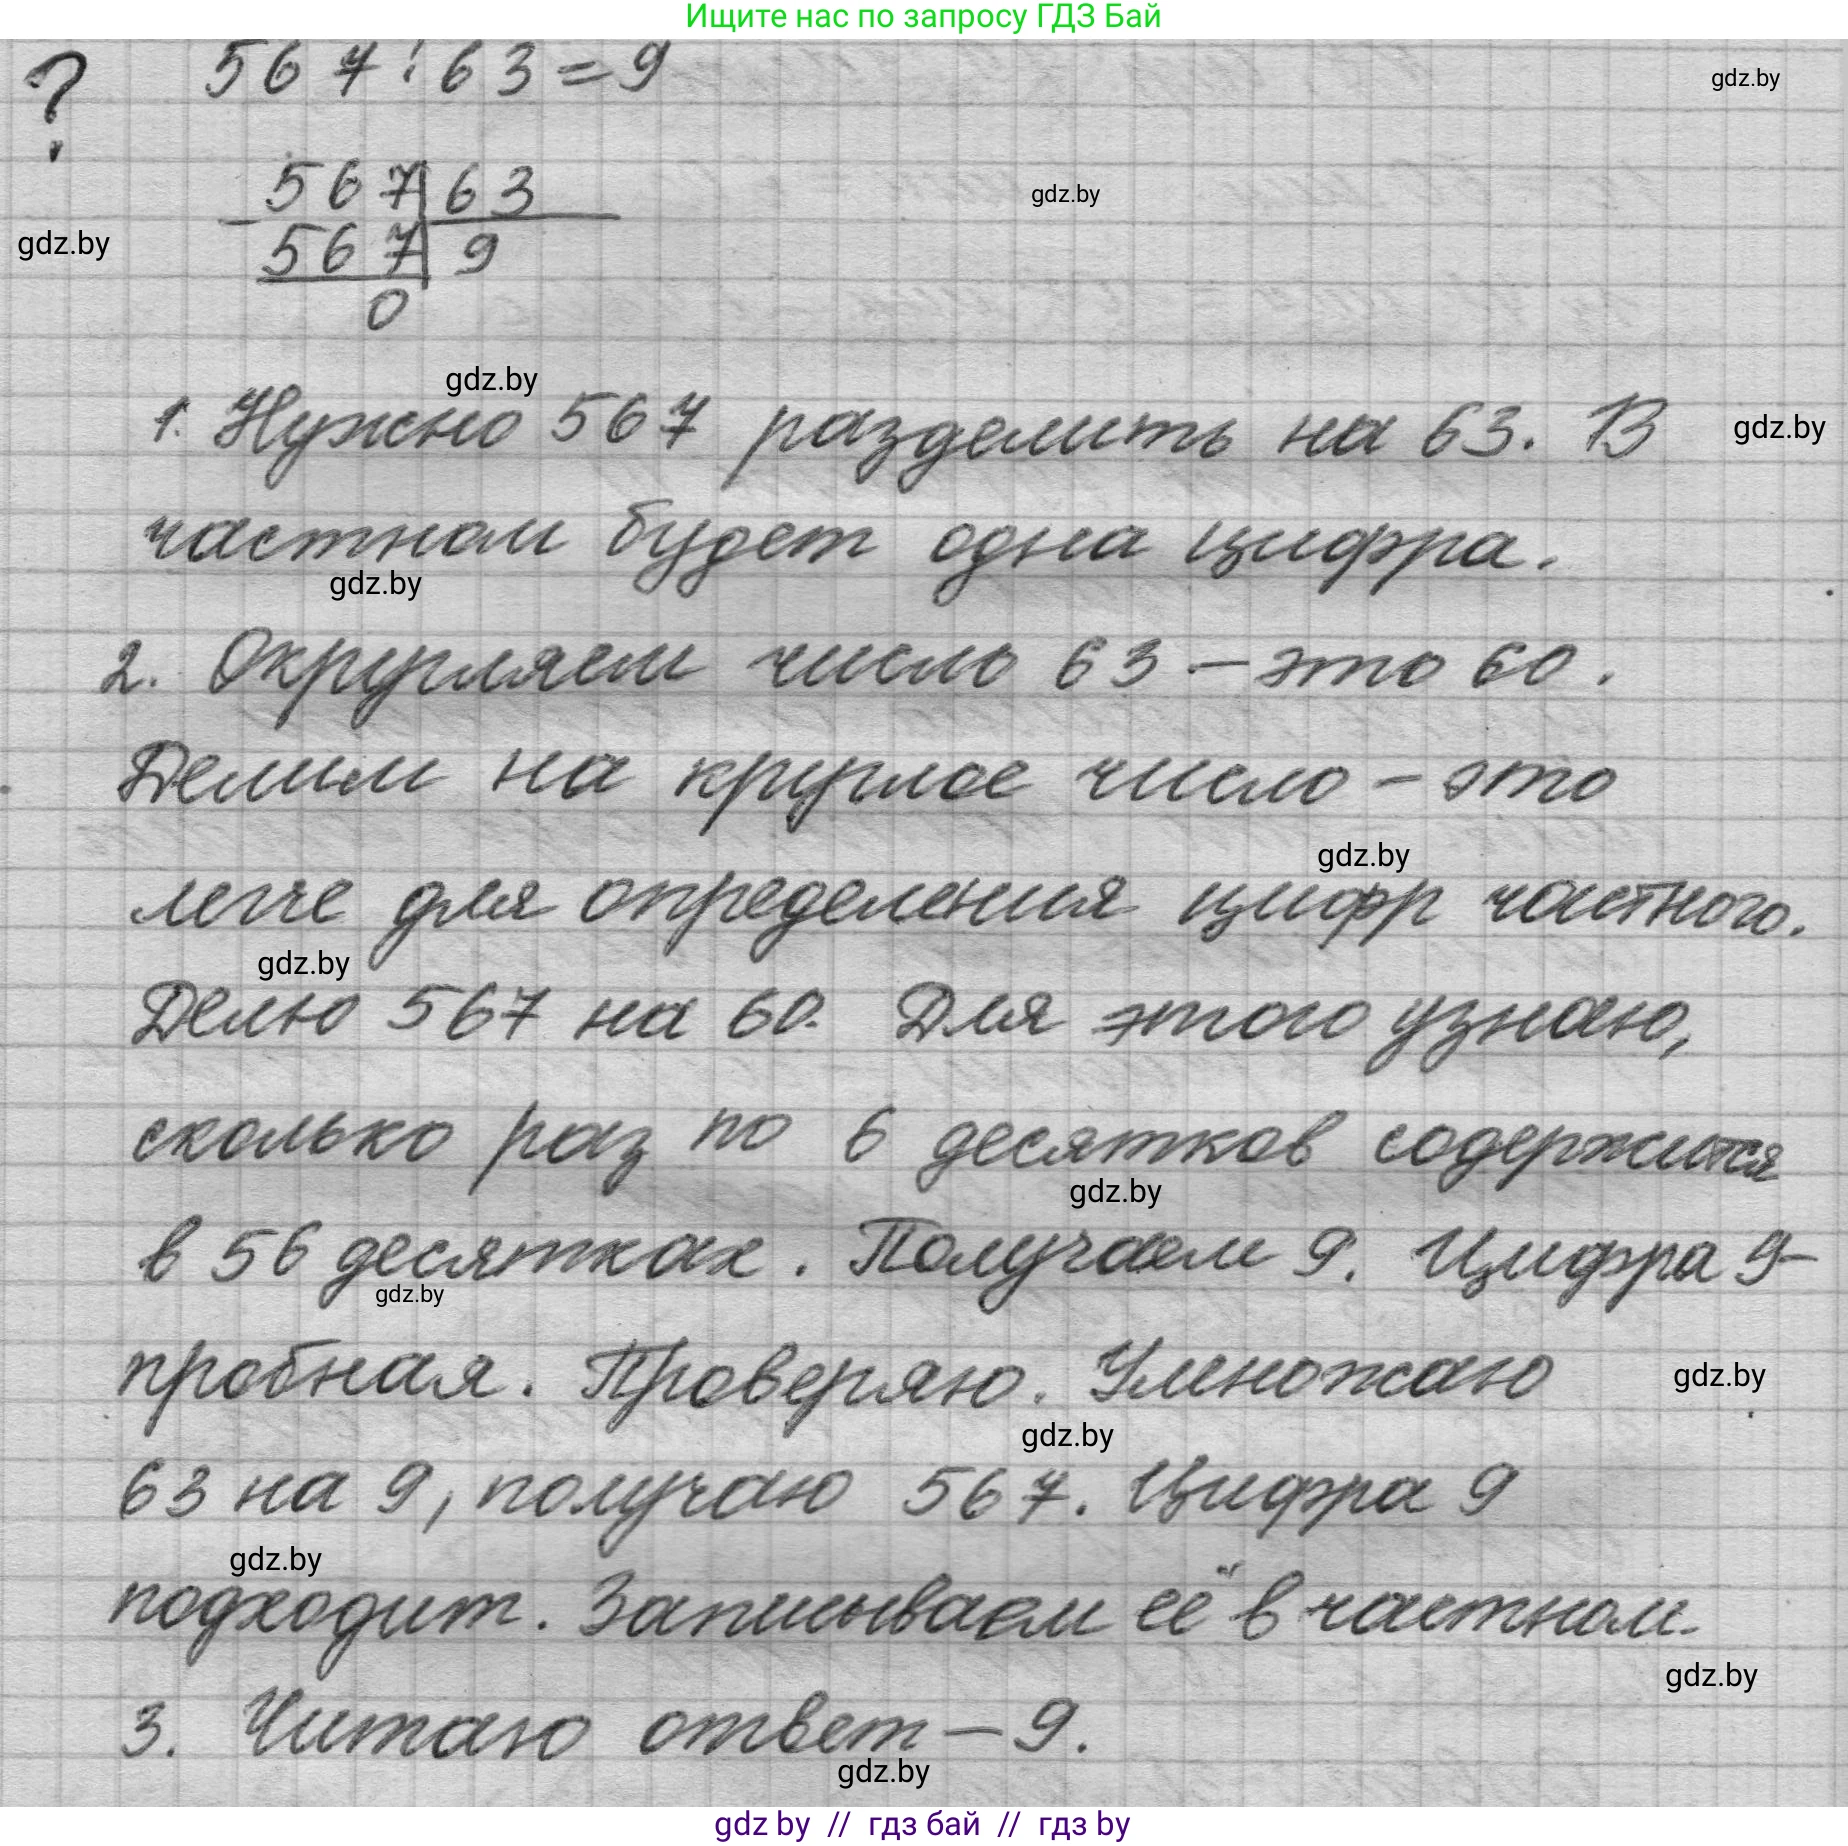 Ищите нас по запросу ГДЗ Бай
? 567 : 63 = 9
gdz.by
567 | 63
gdz.by
- 567 | 9
gdz.by
0
gdz.by
1. Нужно 567 разделить на 63. В
gdz.by
частном будет одна цифра.
gdz.by
2. Округляем число 63 – это 60.
Делим на круглое число – это
gdz.by
легче для определения цифр частного.
gdz.by
Делю 567 на 60. Для этого узнаю,
сколько раз по 6 десятков содержится
gdz.by
в 56 десятках. Получаем 9. Цифра 9 –
gdz.by
пробная. Проверяю. Умножаю
gdz.by
gdz.by
63 на 9, получаю 567. Цифра 9
gdz.by
подходит. Записываем её в частном.
gdz.by
3. Читаю ответ – 9.
gdz.by
gdz by // гдз бай // гдз by